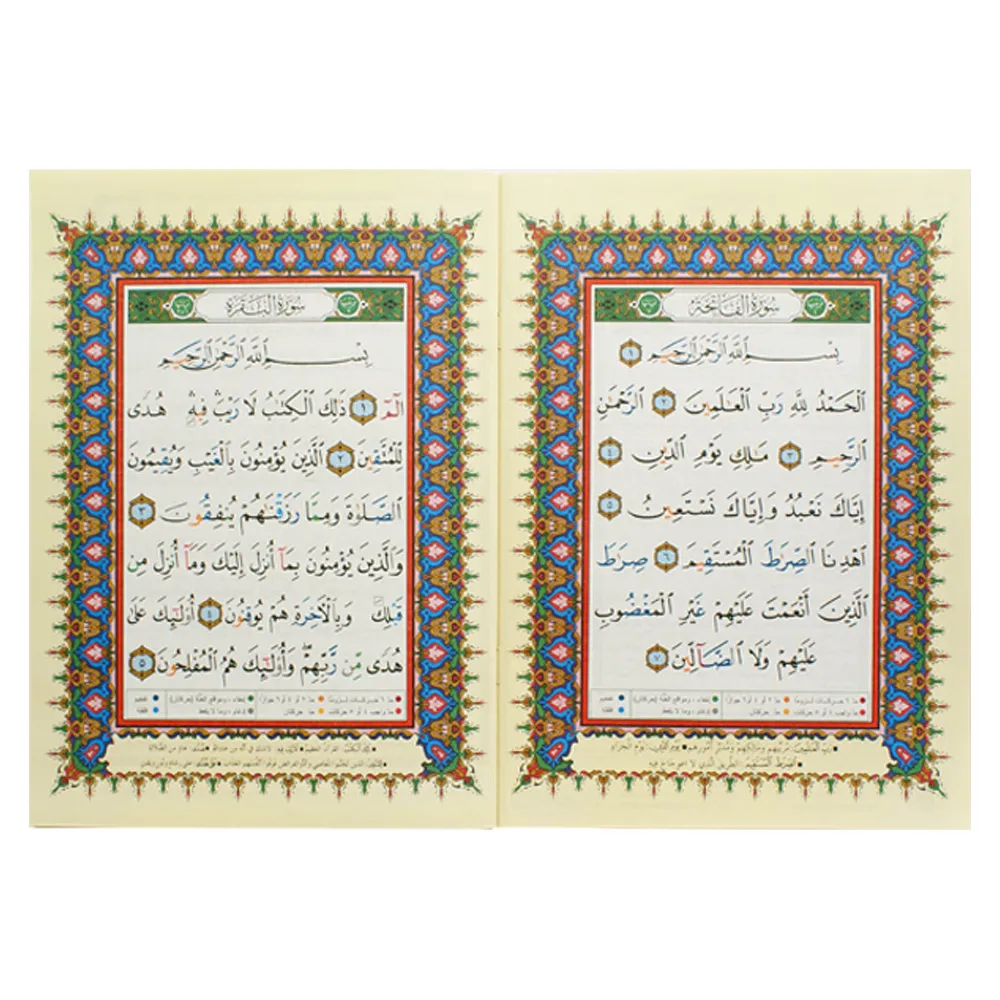 سُورَةُ الفَاتِحَةِ
بِسْمِ اللَّهِ الرَّحْمَٰنِ الرَّحِيمِ ١
الْحَمْدُ لِلَّهِ رَبِّ الْعَالَمِينَ ٢ الرَّحْمَٰنِ
الرَّحِيمِ ٣ مَالِكِ يَوْمِ الدِّينِ ٤
إِيَّاكَ نَعْبُدُ وَإِيَّاكَ نَسْتَعِينُ ٥
اهْدِنَا الصِّرَاطَ الْمُسْتَقِيمَ ٦ صِرَاطَ
الَّذِينَ أَنْعَمْتَ عَلَيْهِمْ غَيْرِ الْمَغْضُوبِ
عَلَيْهِمْ وَلَا الضَّالِّينَ ٧
سُورَةُ البَقَرَةِ
بِسْمِ اللَّهِ الرَّحْمَٰنِ الرَّحِيمِ
الٓمٓ ١ ذَٰلِكَ الْكِتَابُ لَا رَيْبَ فِيهِ هُدًى
لِلْمُتَّقِينَ ٢ الَّذِينَ يُؤْمِنُونَ بِالْغَيْبِ وَيُقِيمُونَ
الصَّلَاةَ وَمِمَّا رَزَقْنَاهُمْ يُنْفِقُونَ ٣
وَالَّذِينَ يُؤْمِنُونَ بِمَا أُنْزِلَ إِلَيْكَ وَمَا أُنْزِلَ مِنْ
قَبْلِكَ وَبِالْآخِرَةِ هُمْ يُوقِنُونَ ٤ أُولَٰئِكَ عَلَىٰ
هُدًى مِنْ رَبِّهِمْ وَأُولَٰئِكَ هُمُ الْمُفْلِحُونَ ٥